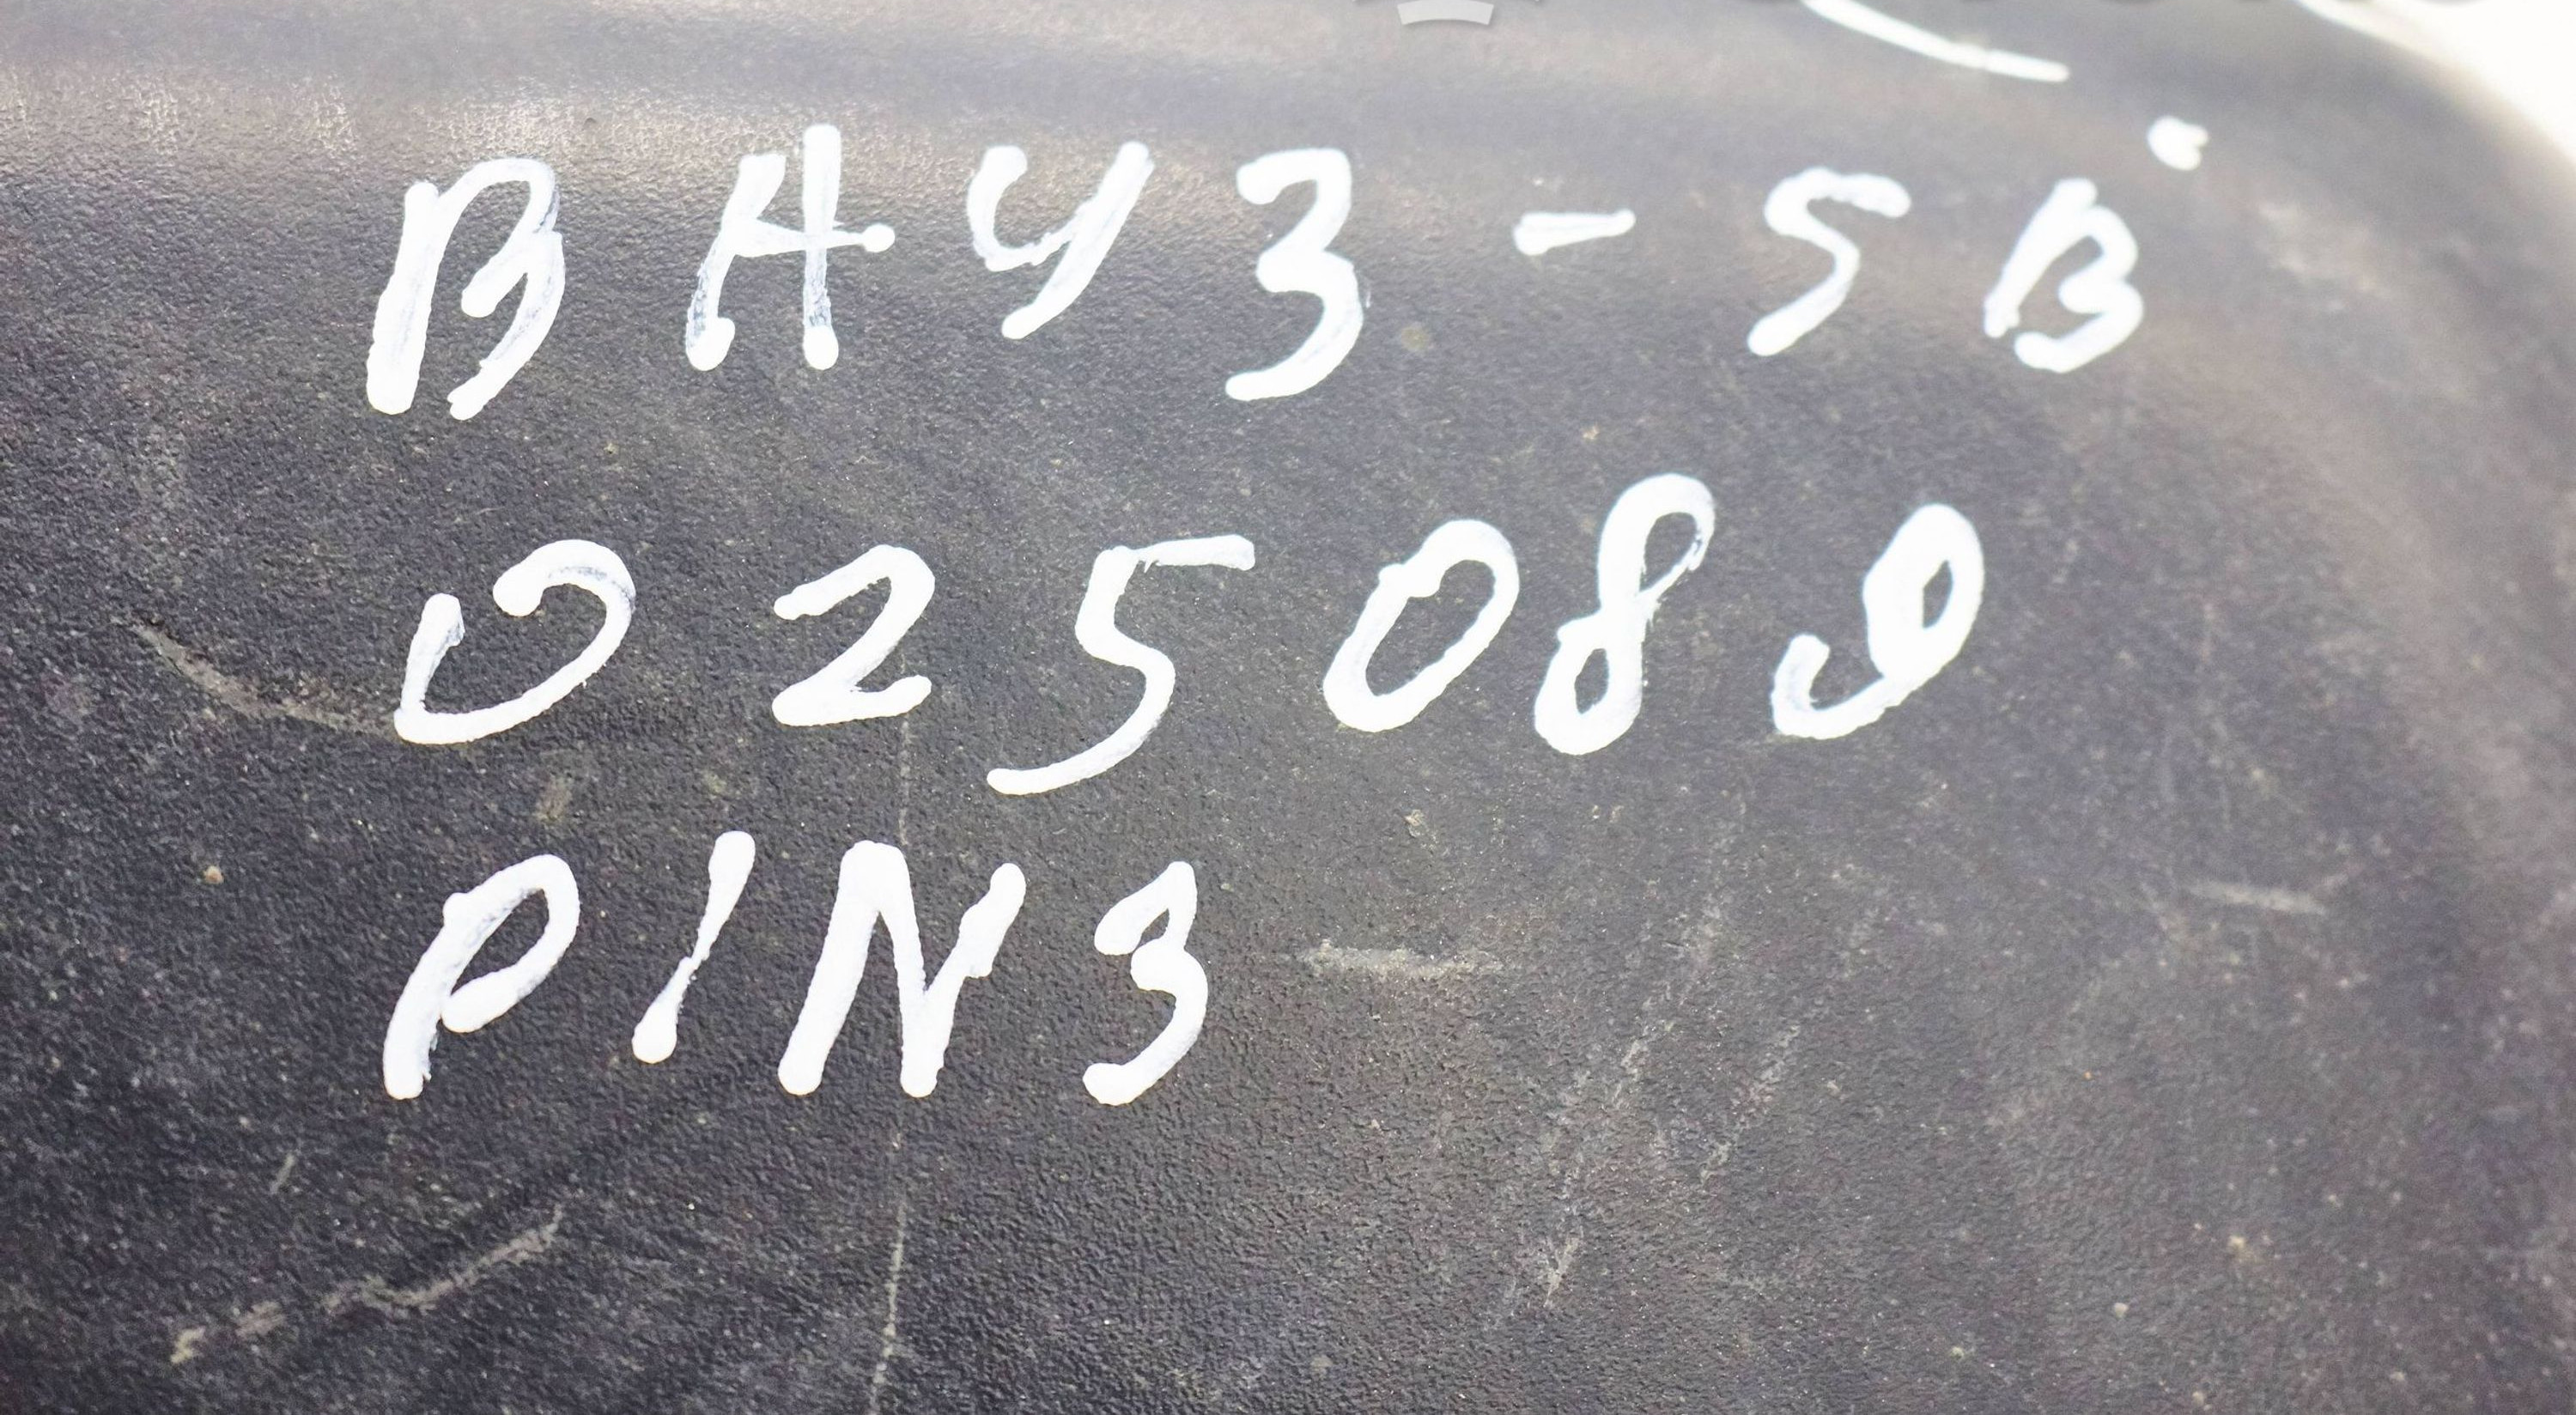 BHY3-5B
025089
PIN3